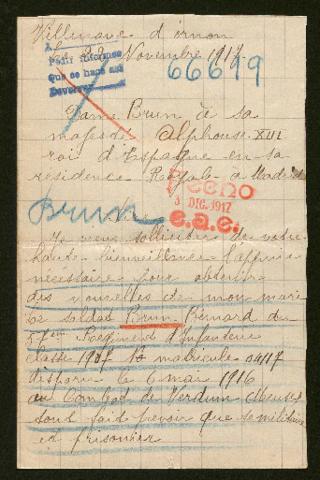 Villenave d'ornon
le 22 Novembre 1917
A
Pedir informes
que se hace así
Devolver
66699
Dame Brun à sa
majesté Alphonse XIII
roi d'Espagne en sa
résidence Royale à Madrid
Brun
3 DIC. 1917
Je viens solliciter de votre
haute bienveillance l'appui
nécessaire pour obtenir
des nouvelles de mon mari
le soldat Brun Bernard du
57em Regiment d'Infanterie
Classe 1907 matricule 0417
disparu le 6 mai 1916
au Combat de Verdun Meuse
tout fait prevoir que ce militaire
est prisonnier